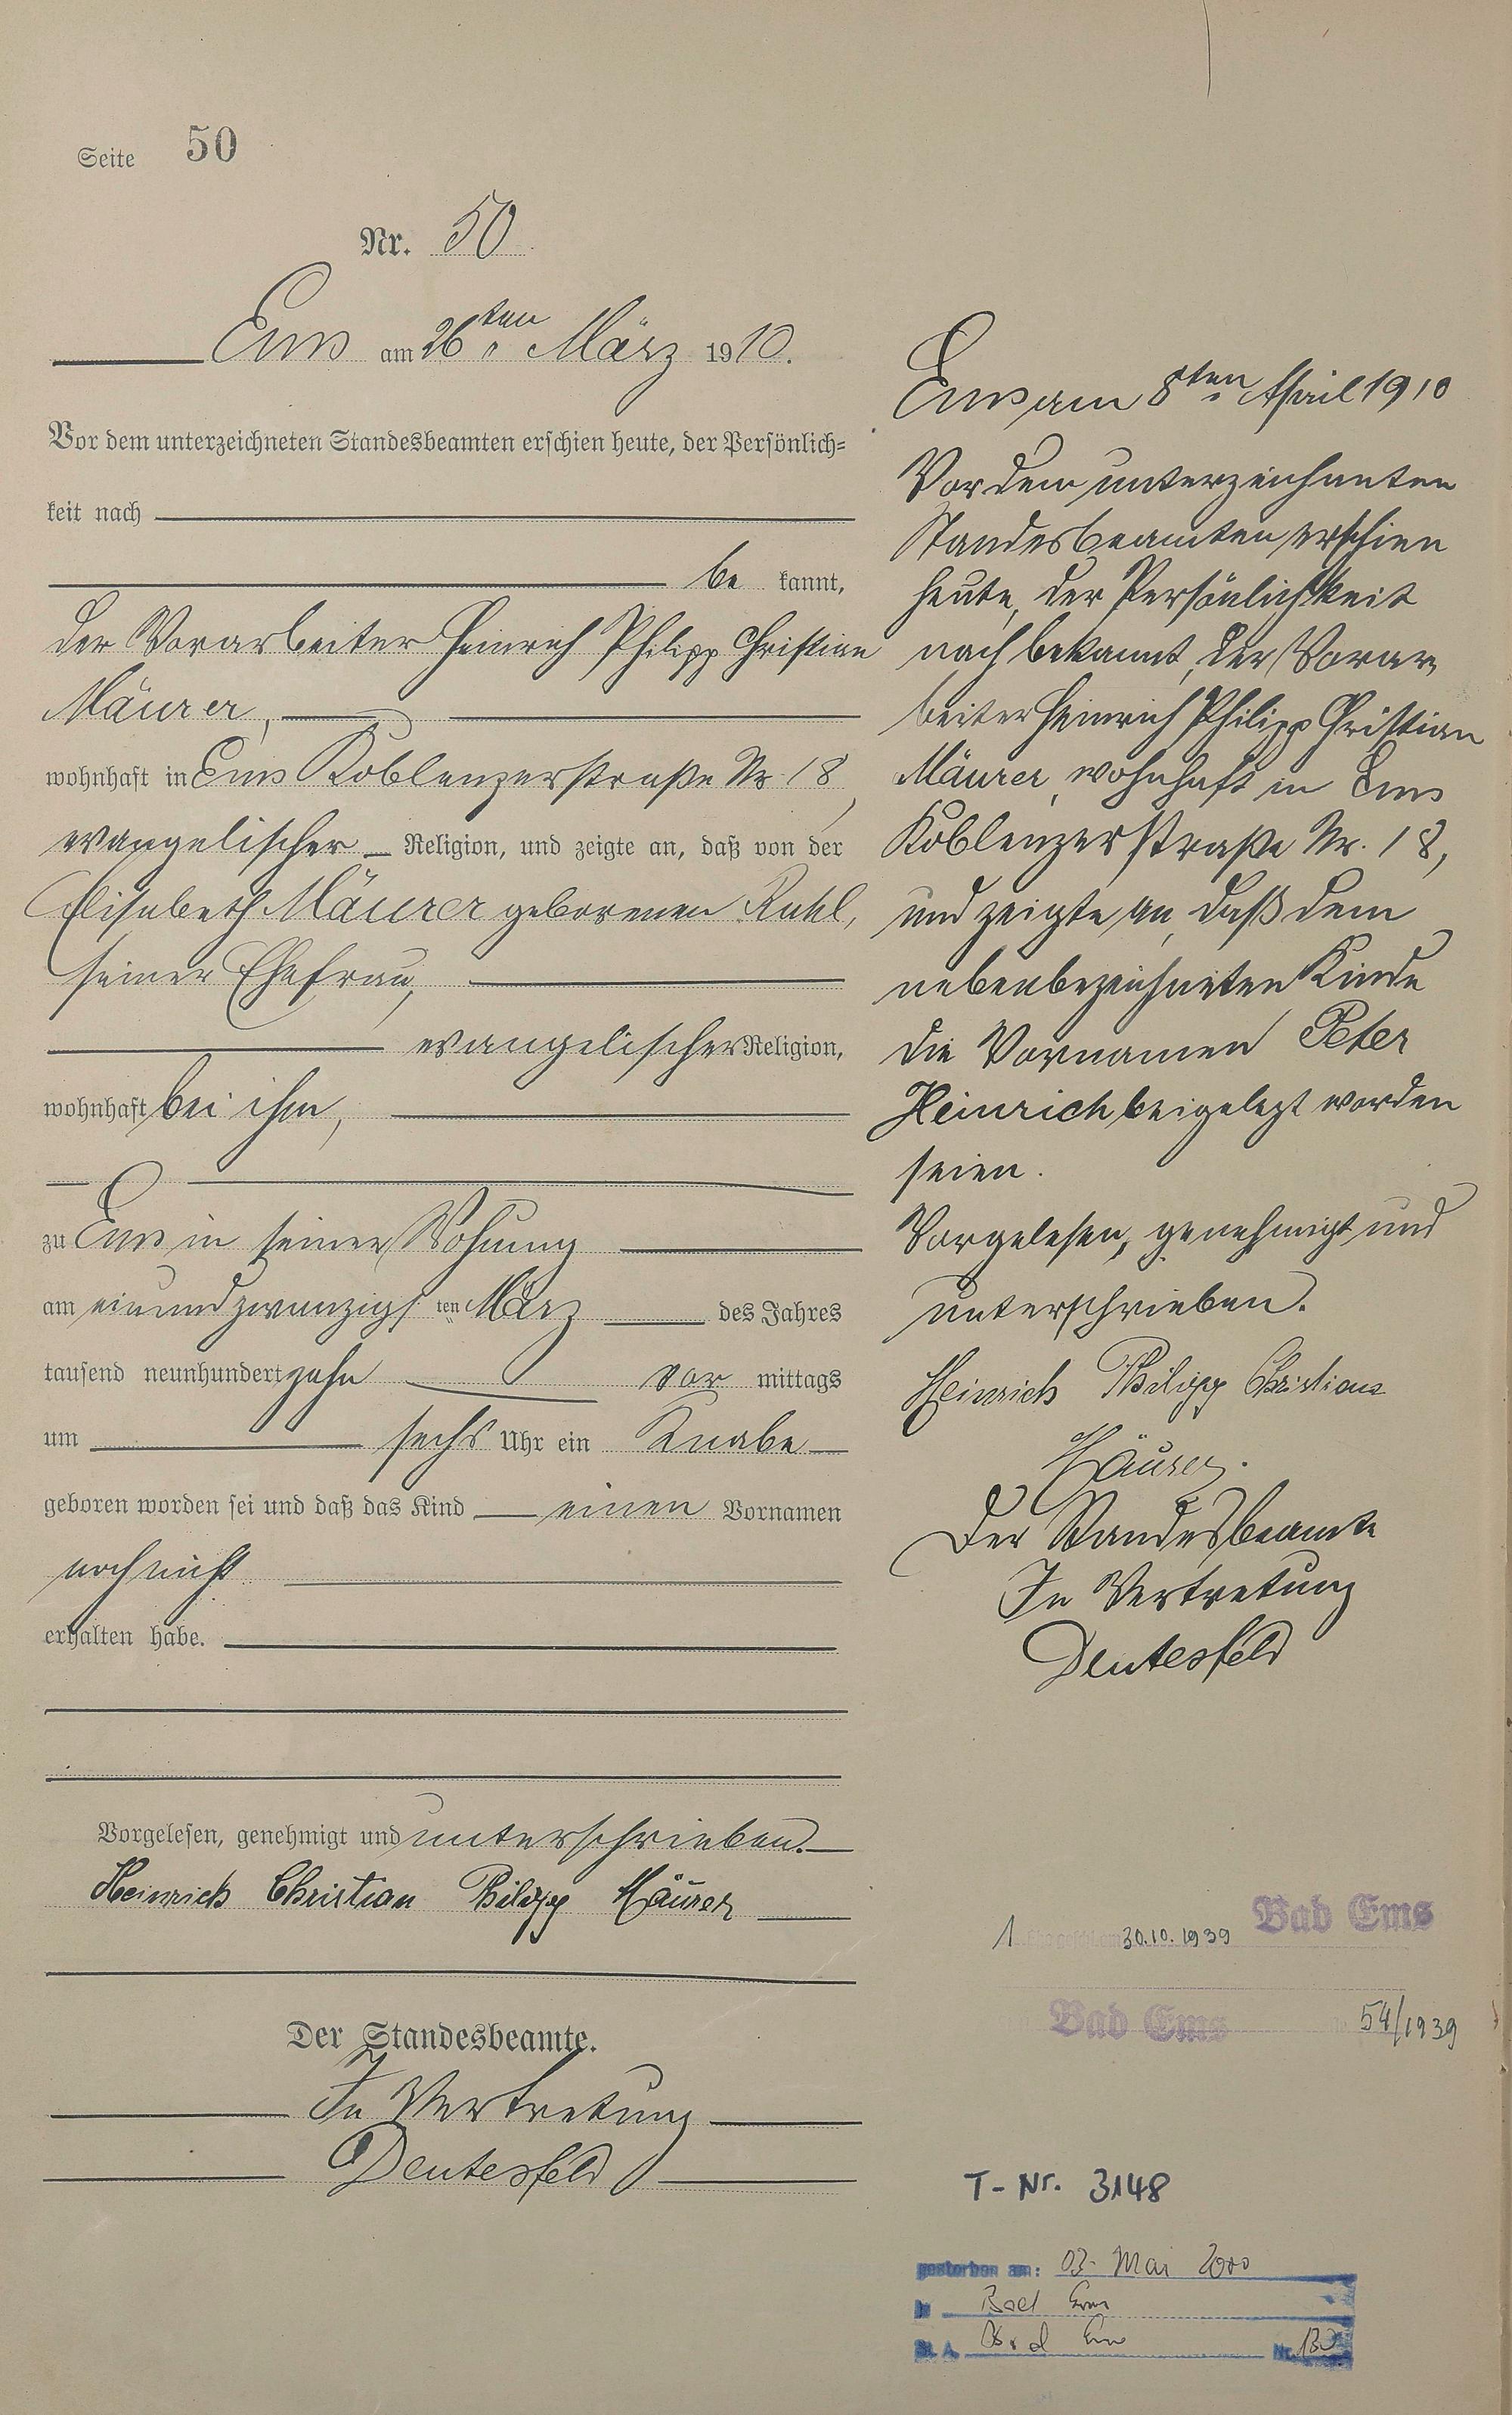 Seite 50
Nr. 50
Ems am 26ten März 1910.
Vor dem unterzeichneten Standesbeamten erschien heute, der Persönlich=
keit nach
be kannt,
der Vorarbeiter Heinrich Philipp Christian
Mäurer,
wohnhaft in Ems Koblenzerstraße Nr. 18,
evangelischer Religion, und zeigte an, daß von der
Elisabeth Mäurer geborenen Ruhl,
seiner Ehefrau,
evangelischer Religion,
wohnhaft bei ihm,
zu Ems in seiner Wohnung
am einundzwanzigsten März des Jahres
tausend neunhundert zehn vor mittags
um sechs Uhr ein Knabe
geboren worden sei und daß das Kind einen Vornamen
noch nicht
erhalten habe.
Vorgelesen, genehmigt und unterschrieben.
Heinrich Christian Philipp Mäurer
Der Standesbeamte.
In Vertretung
Deutesfeld
Ems am 8ten April 1910
Vor dem unterzeichneten
Standesbeamten erschien
heute, der Persönlichkeit
nach bekannt, der Vorar-
beiter Heinrich Philipp Christian
Mäurer, wohnhaft in Ems
Koblenzerstraße Nr. 18,
und zeigte an, daß dem
nebenbezeichneten Kinde
die Vornamen Peter
Heinrich beigelegt worden
seien.
Vorgelesen, genehmigt und
unterschrieben.
Heinrich Philipp Christian
Mäurer.
Der Standesbeamte
In Vertretung
Deutesfeld
1. 30.10.1939 Bad Ems
Bad Ems 54/1939
T-Nr. 3148
gestorben am: 03. Mai 2000
in Bad Ems
St. A. Bad Ems Nr. 130